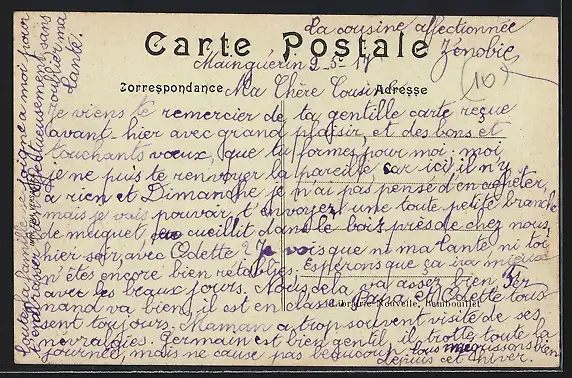 Carte Postale
Correspondance
Adresse
Mainguérin 2-5-17
Ma Chère Cousine
Je viens te remercier de ta gentille carte reçue
avant hier avec grand plaisir, et des bons et
touchants vœux, que tu formes pour moi: moi
je ne puis te renvoyer la pareille car ici il n'y
a rien et Dimanche je n'ai pas pensé d'en acheter,
mais je vais pouvoir t'envoyer une toute petite branche
de muguet, cueillit dans le bois près de chez nous,
hier soir, avec Odette. Je vois que ni ma tante ni toi
n'êtes encore bien rétablies. Espérons que ça ira mieux
avec les beaux jours. Nous cela va assez bien. Fer
nand va bien, il est en classe, Odette tous
sent toujours. Maman a trop souvent visite de ses
névralgies. Germain est bien gentil, il trotte toute la
journée, mais ne cause pas beaucoup tous maigrissons bien
depuis cet hiver.
Librairie Nouvelle, Rambouillet
Toute la famille se joigne à moi pour
t'embrasser affectueusement sans
oublier ma
tante.
La cousine affectionnée
Zénobie
(16)